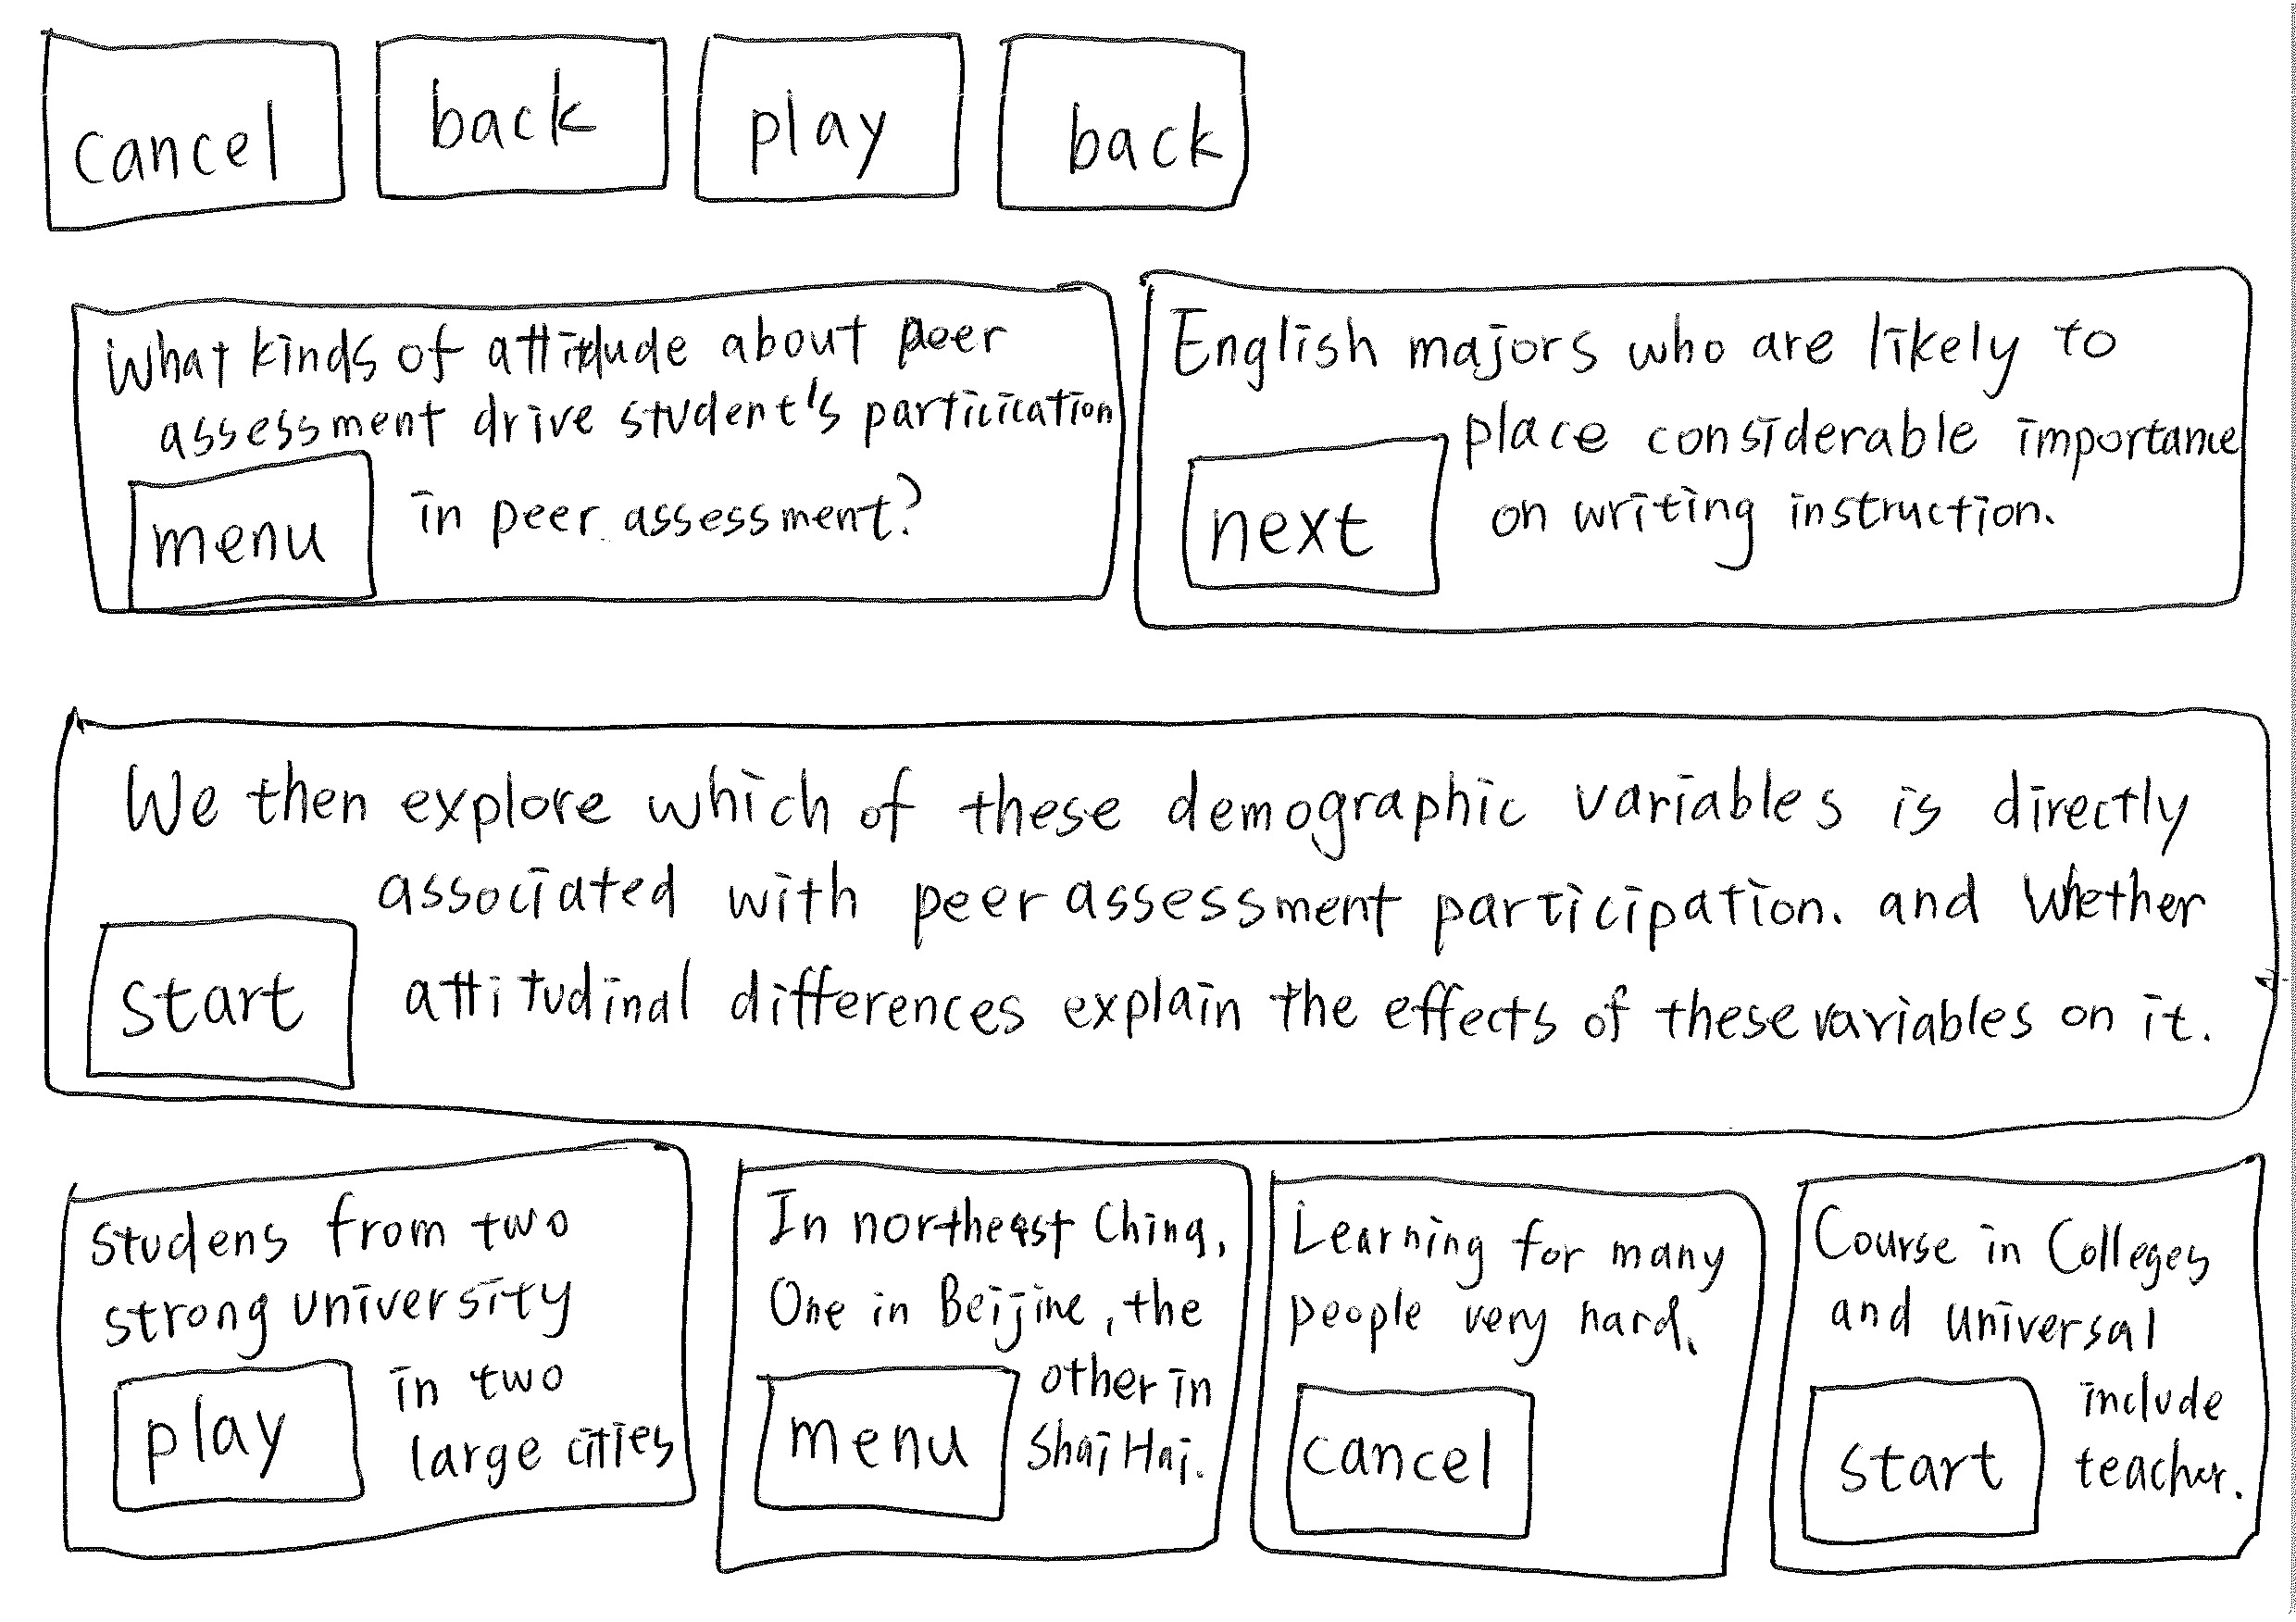 cancel back play back
What kinds of attitdude about peer
assessment drive student's particication
menu in peer assessment?
English majors who are likely to
place considerable importance
next on writing instruction.
We then explore which of these demographic variables is directly
associated with peer assessment participation. and Whether
start attitudinal differences explain the effects of these variables on it.
studens from two
strong university
play in two
large cities
In northeast China,
One in Beijine, the
menu other in
Shai Hai.
Learning for many
people very hard.
cancel
Course in Colleges
and universal
include
start teacher.